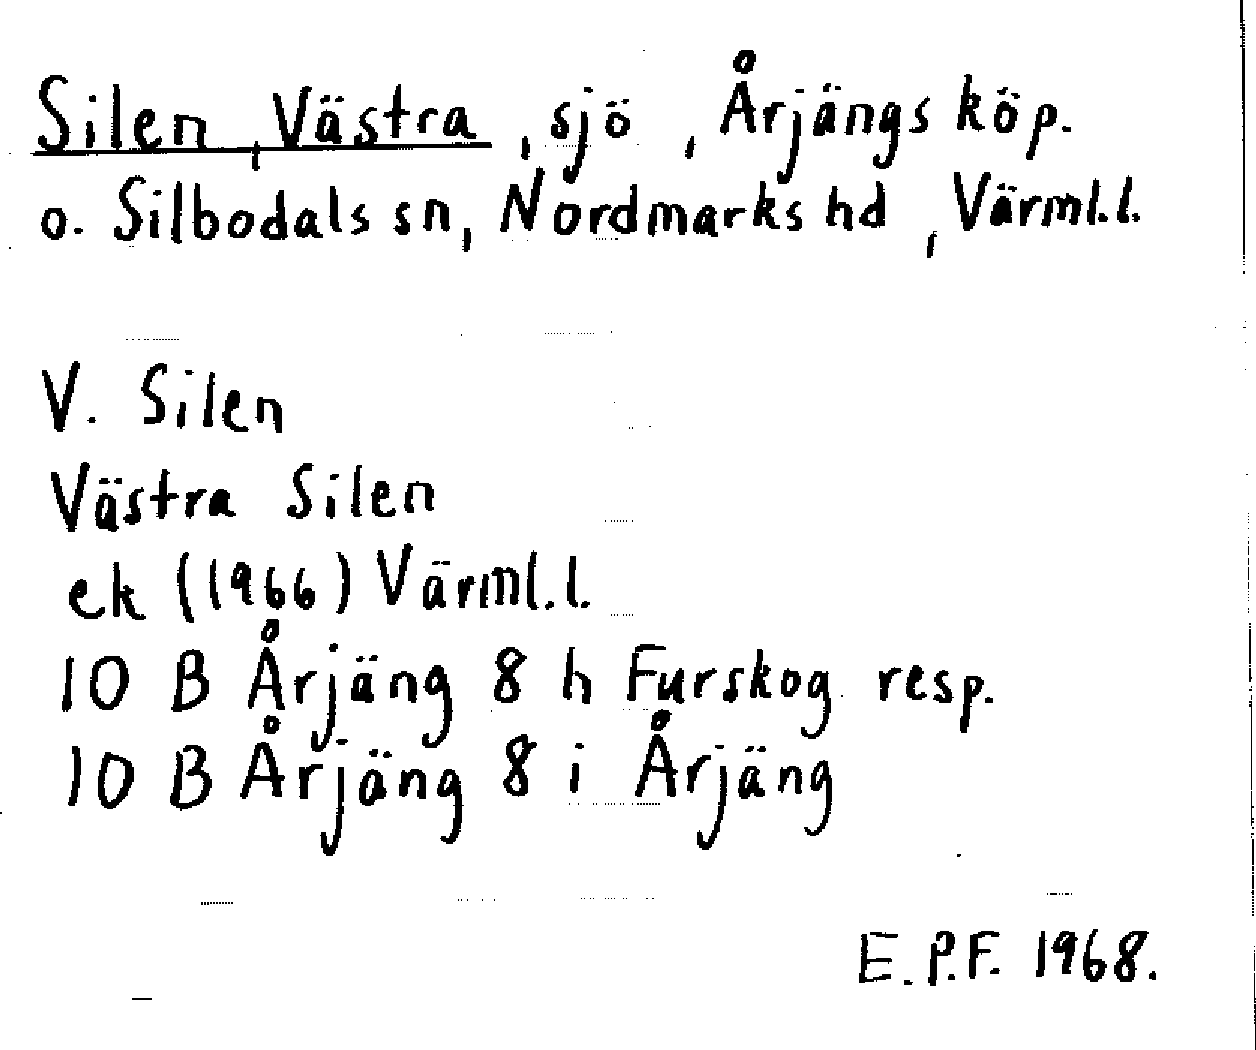 Silen, Västra, sjö, Årjängs köp.
o. Silbodals sn, Nordmarks hd, Värml.l.
V. Silen
Västra Silen
ek (1966) Värml.l.
10 B Årjäng 8 h Furskog resp.
10 B Årjäng 8 i Årjäng
E.P.F. 1968.